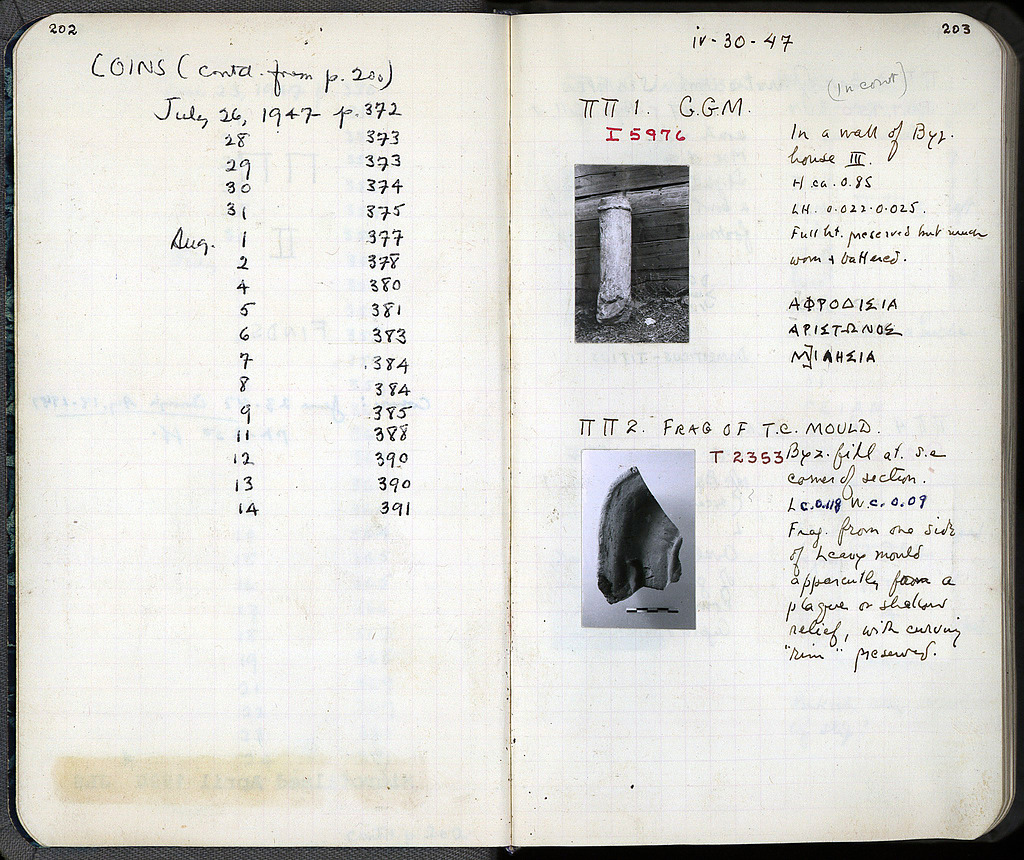 202
COINS (contd. from p. 200)
July 26, 1947 p. 372
28 373
29 373
30 374
31 375
Aug. 1 377
2 378
4 380
5 381
6 383
7 384
8 384
9 385
11 388
12 390
13 390
14 391
203
iv-30-47
(In court)
ΠΠ 1. G.G.M.
I 5976
In a wall of Byz.
house III.
H ca. 0.85
LH. 0.022-0.025.
Full ht. preserved but much
worn & battered.
ΑΦΡΟΔΙΣΙΑ
ΑΡΙΣΤΩΝΟΣ
ΜΙΛΗΣΙΑ
ΠΠ 2. FRAG OF T.C. MOULD.
T 2353
Byz. fill at s.e
corner of section.
L c. 0.118 W. c. 0.09
Frag. from one side
of heavy mould
apparently from a
plaque or shallow
relief, with curving
"rim" preserved.